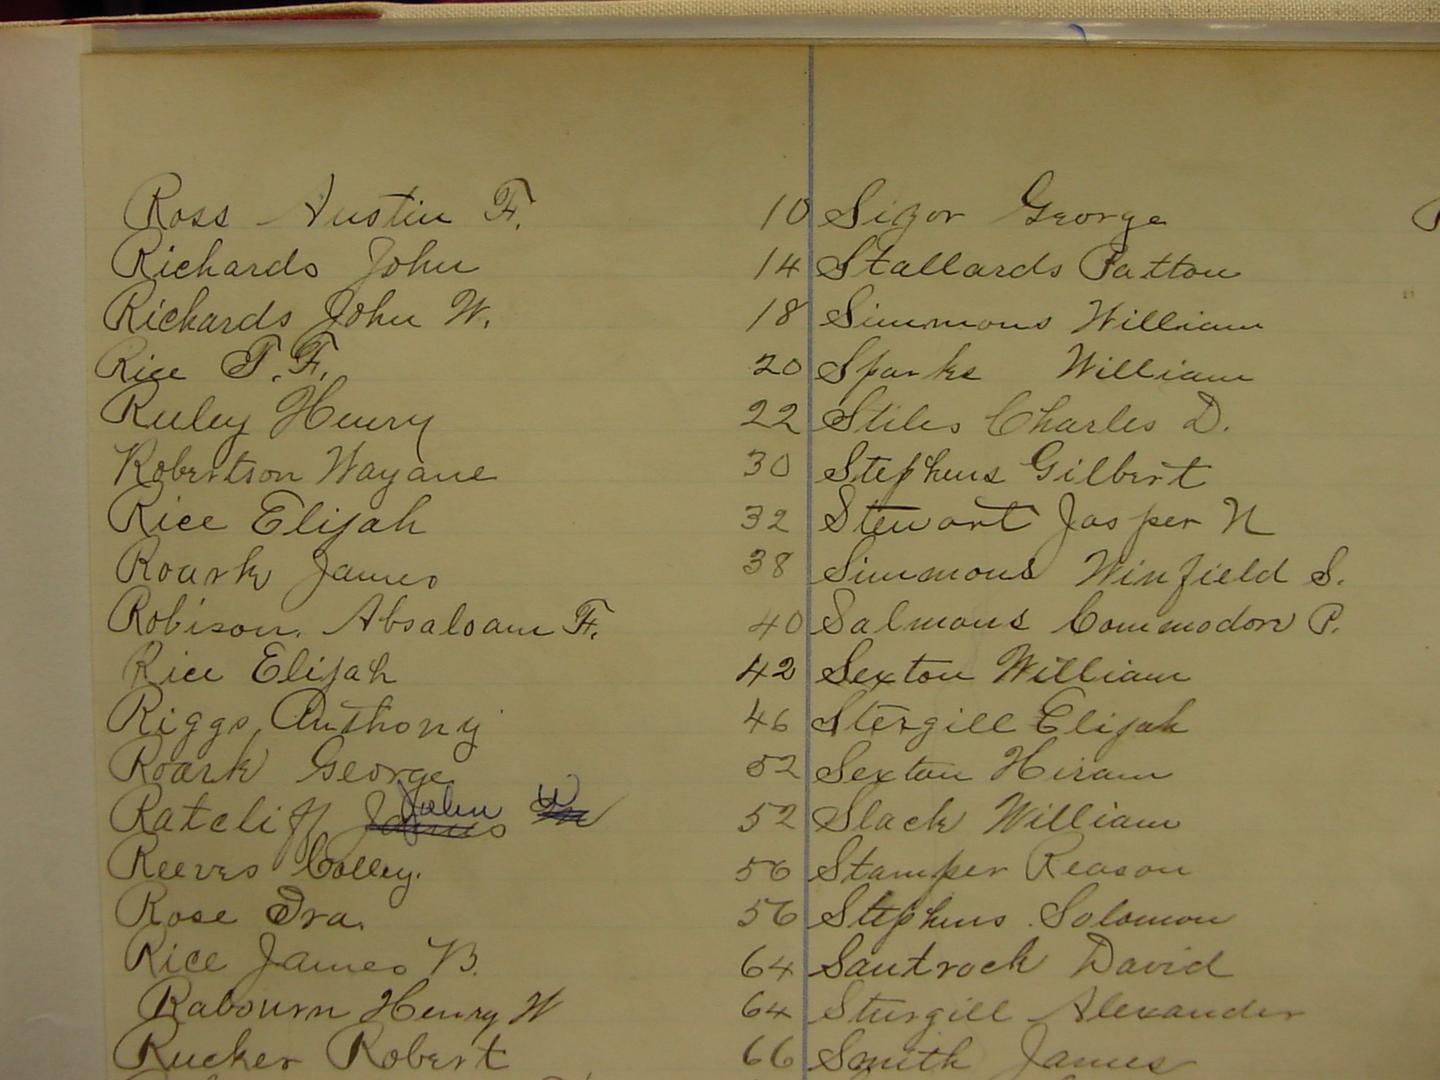 Ross Austin F. 10
Richards John 14
Richards John W. 18
Rice T. F. 20
Ruley Henry 22
Robertson Wayane 30
Rice Elijah 32
Roark James 38
Robison. Absaloam F. 40
Rice Elijah 42
Riggs, Anthony 46
Roark George 52
Ratcliff James John W 52
Reeves Colley. 56
Rose Ira. 56
Rice James B. 64
Rabourn Henry W 64
Rucker Robert 66
Sizor George
Stallards Patton
Simmons William
Sparks William
Stiles Charles D.
Stephens Gilbert
Stewart Jasper N
Simmons Winfield S.
Salmons Commodore P.
Sexton William
Stergill Elijah
Sexton Hiram
Slack William
Stamper Reason
Stephens Solomon
Sautrock David
Sturgill Alexander
Smith James